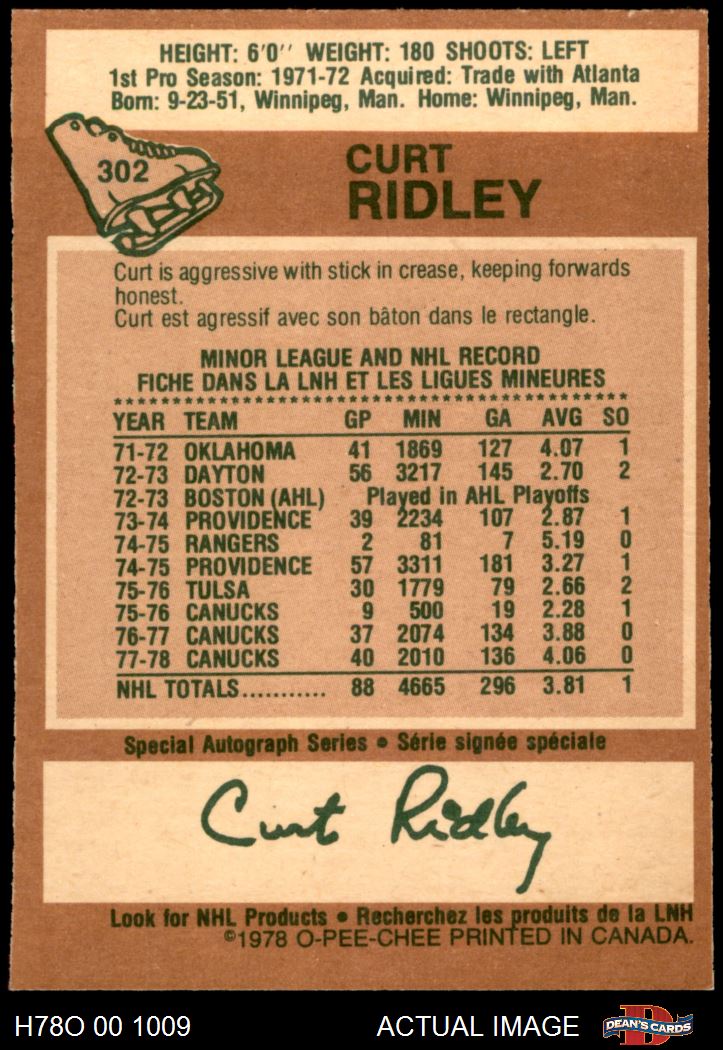 HEIGHT: 6'0'' WEIGHT: 180 SHOOTS: LEFT
1st Pro Season: 1971-72 Acquired: Trade with Atlanta
Born: 9-23-51, Winnipeg, Man. Home: Winnipeg, Man.
302
CURT
RIDLEY
Curt is aggressive with stick in crease, keeping forwards
honest.
Curt est agressif avec son bâton dans le rectangle.
MINOR LEAGUE AND NHL RECORD
FICHE DANS LA LNH ET LES LIGUES MINEURES
YEAR TEAM GP MIN GA AVG SO
71-72 OKLAHOMA 41 1869 127 4.07 1
72-73 DAYTON 56 3217 145 2.70 2
72-73 BOSTON (AHL) Played in AHL Playoffs
73-74 PROVIDENCE 39 2234 107 2.87 1
74-75 RANGERS 2 81 7 5.19 0
74-75 PROVIDENCE 57 3311 181 3.27 1
75-76 TULSA 30 1779 79 2.66 2
75-76 CANUCKS 9 500 19 2.28 1
76-77 CANUCKS 37 2074 134 3.88 0
77-78 CANUCKS 40 2010 136 4.06 0
NHL TOTALS........... 88 4665 296 3.81 1
Special Autograph Series • Série signée spéciale
Curt Ridley
Look for NHL Products • Recherchez les produits de la LNH
©1978 O-PEE-CHEE PRINTED IN CANADA.
H78O 00 1009 ACTUAL IMAGE DEAN'S CARDS